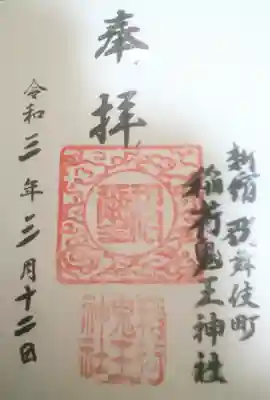 新宿歌舞伎町
稲荷鬼王神社
奉拝
令和三年三月十二日
稲荷
鬼王
神社